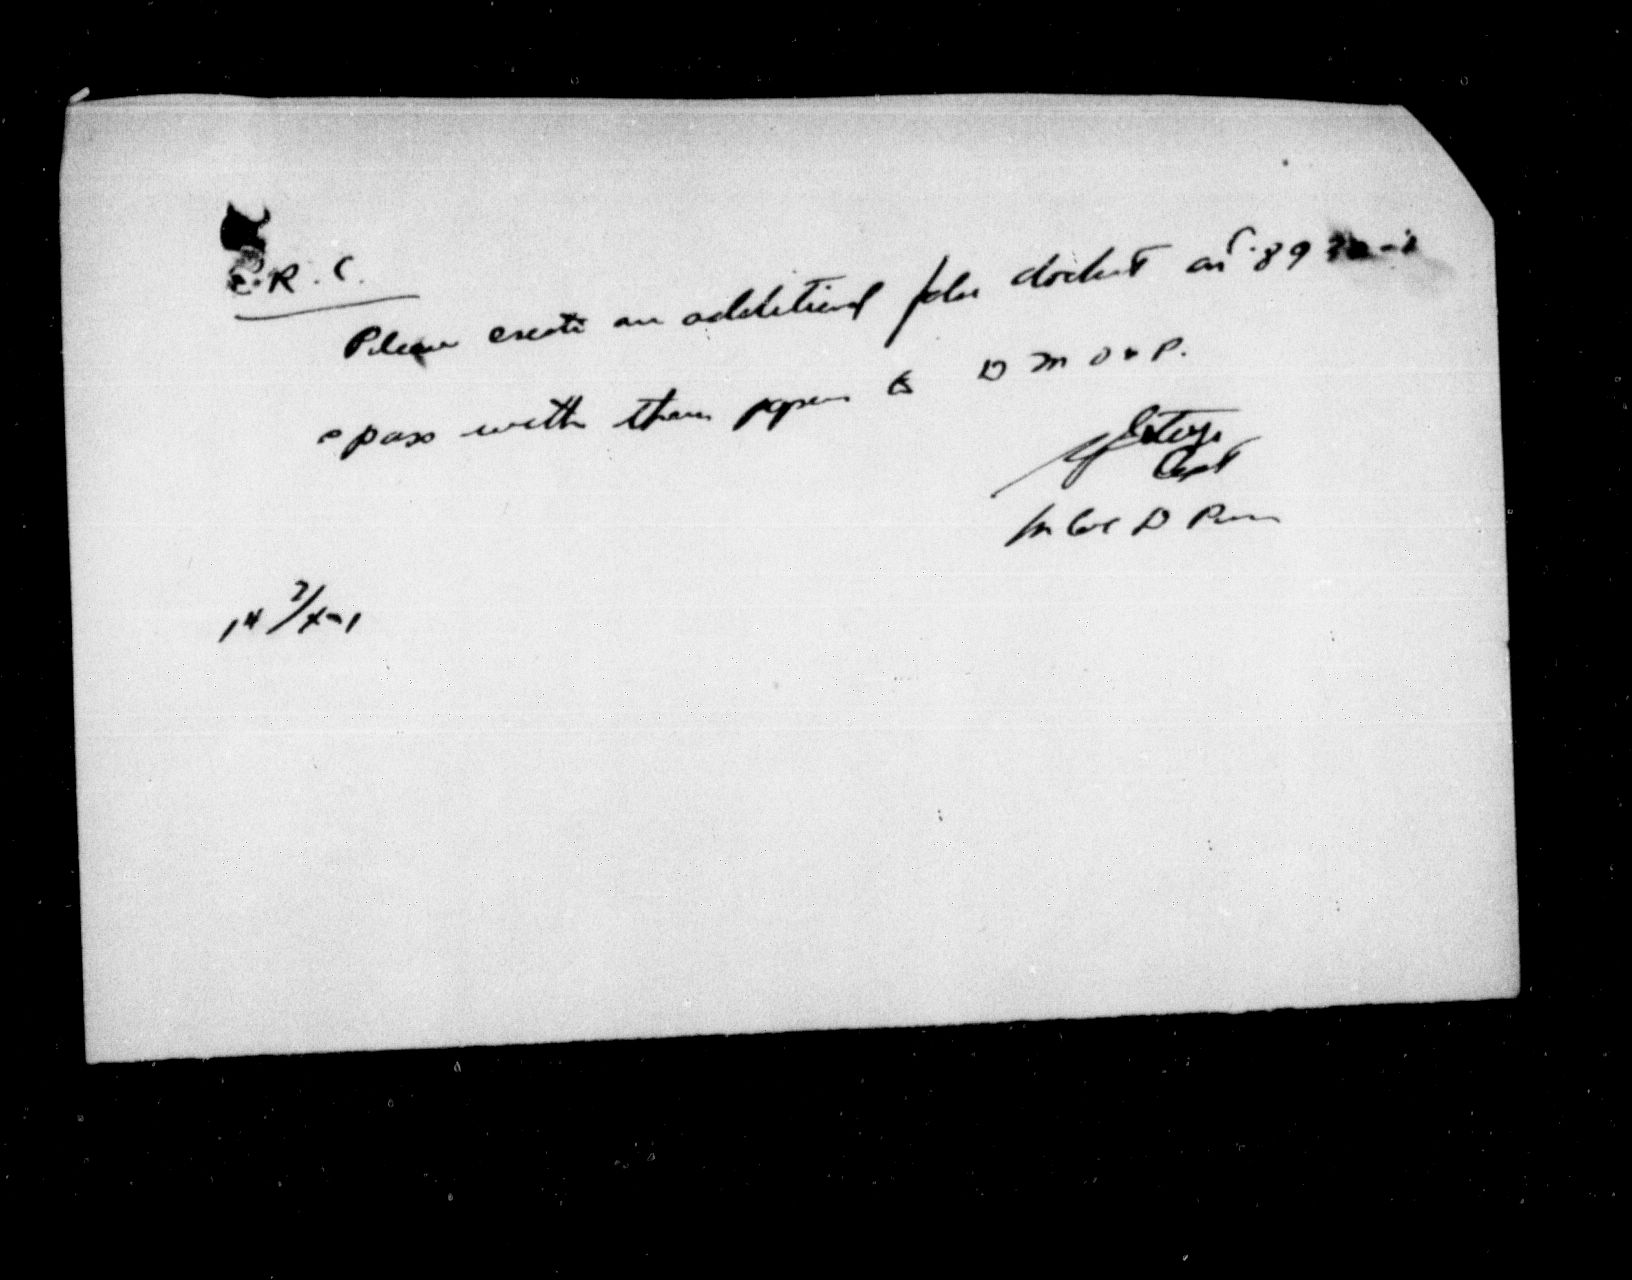 C.R.C.
Please create an additional false docket on C.89
& pass with these papers to D M O & P.
Capt
for Col D
14